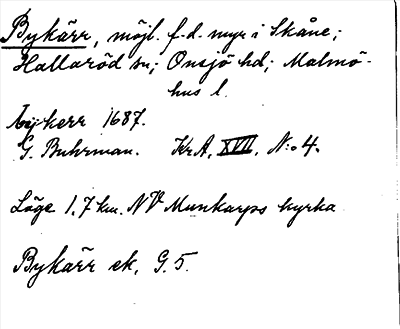 Bykärr, möjl. f.d. myr i Skåne;
Hallaröd sn; Onsjö hd; Malmö-
hus l.
kerr 1687.
G. Buhrman. KrA, XVII, N:o 4.
Läge 1,7 km. NV Munkarps kyrka
Bykärr ek, G. 5.